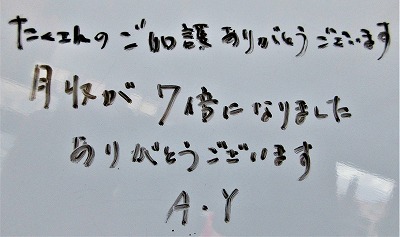 たくさんのご加護ありがとうございます
月収が7倍になりました
ありがとうございます
A.Y